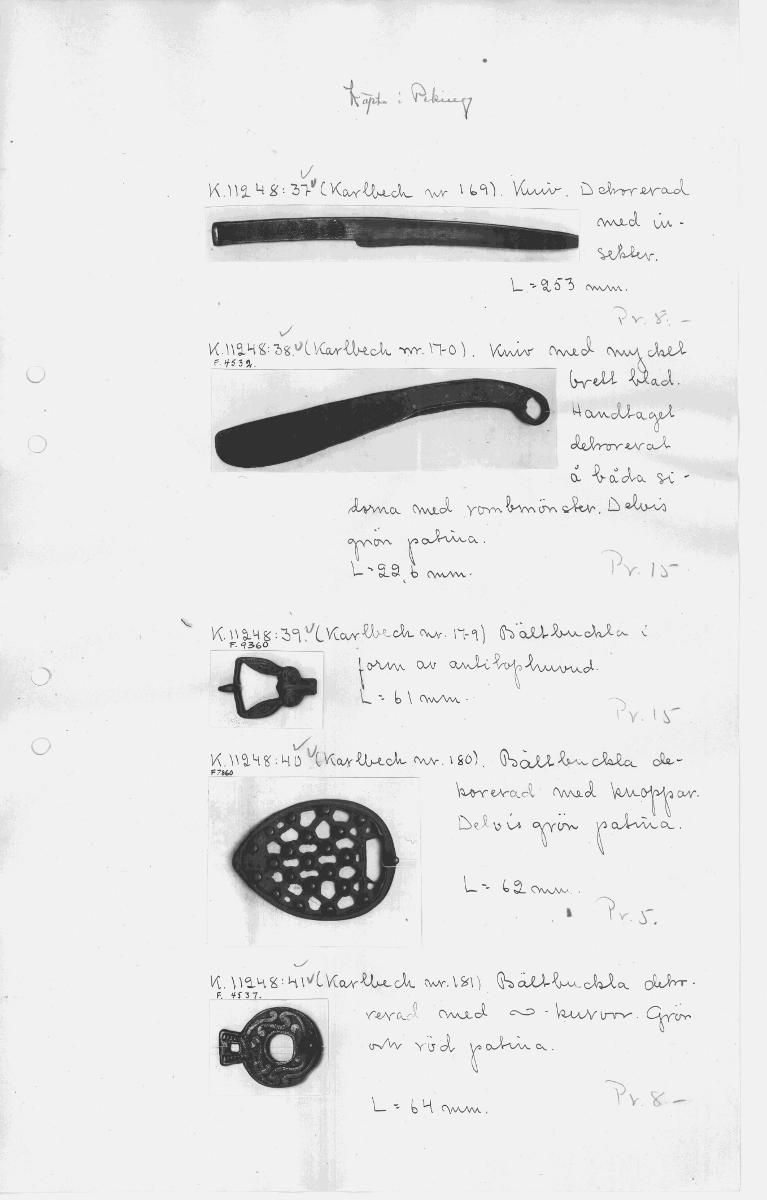 Köpta i Peking
K.11248:37 (Karlbeck nr 169). Kniv. Dekorerad
med in-
sekter.
L = 253 mm.
Pr. 8.-
K.11248:38. (Karlbeck nr. 170). Kniv med mycket
F. 4532.
brett blad.
Handtaget
dekorerat
å båda si-
dorna med rombmönster. Delvis
grön patina.
L = 22,6 mm.
Pr. 15
K.11248:39. (Karlbeck nr. 179) Bältbuckla i
F. 9360
form av antilophuvud.
L = 61 mm.
Pr. 15
K.11248:40 (Karlbeck nr. 180). Bältbuckla de-
F 7860
korerad med knoppar.
Delvis grön patina.
L = 62 mm.
Pr. 5.
K.11248:41 (Karlbeck nr. 181) Bältbuckla deko-
F. 4537.
rerad med ~ -kurvor. Grön
och röd patina.
L = 64 mm.
Pr. 8 -